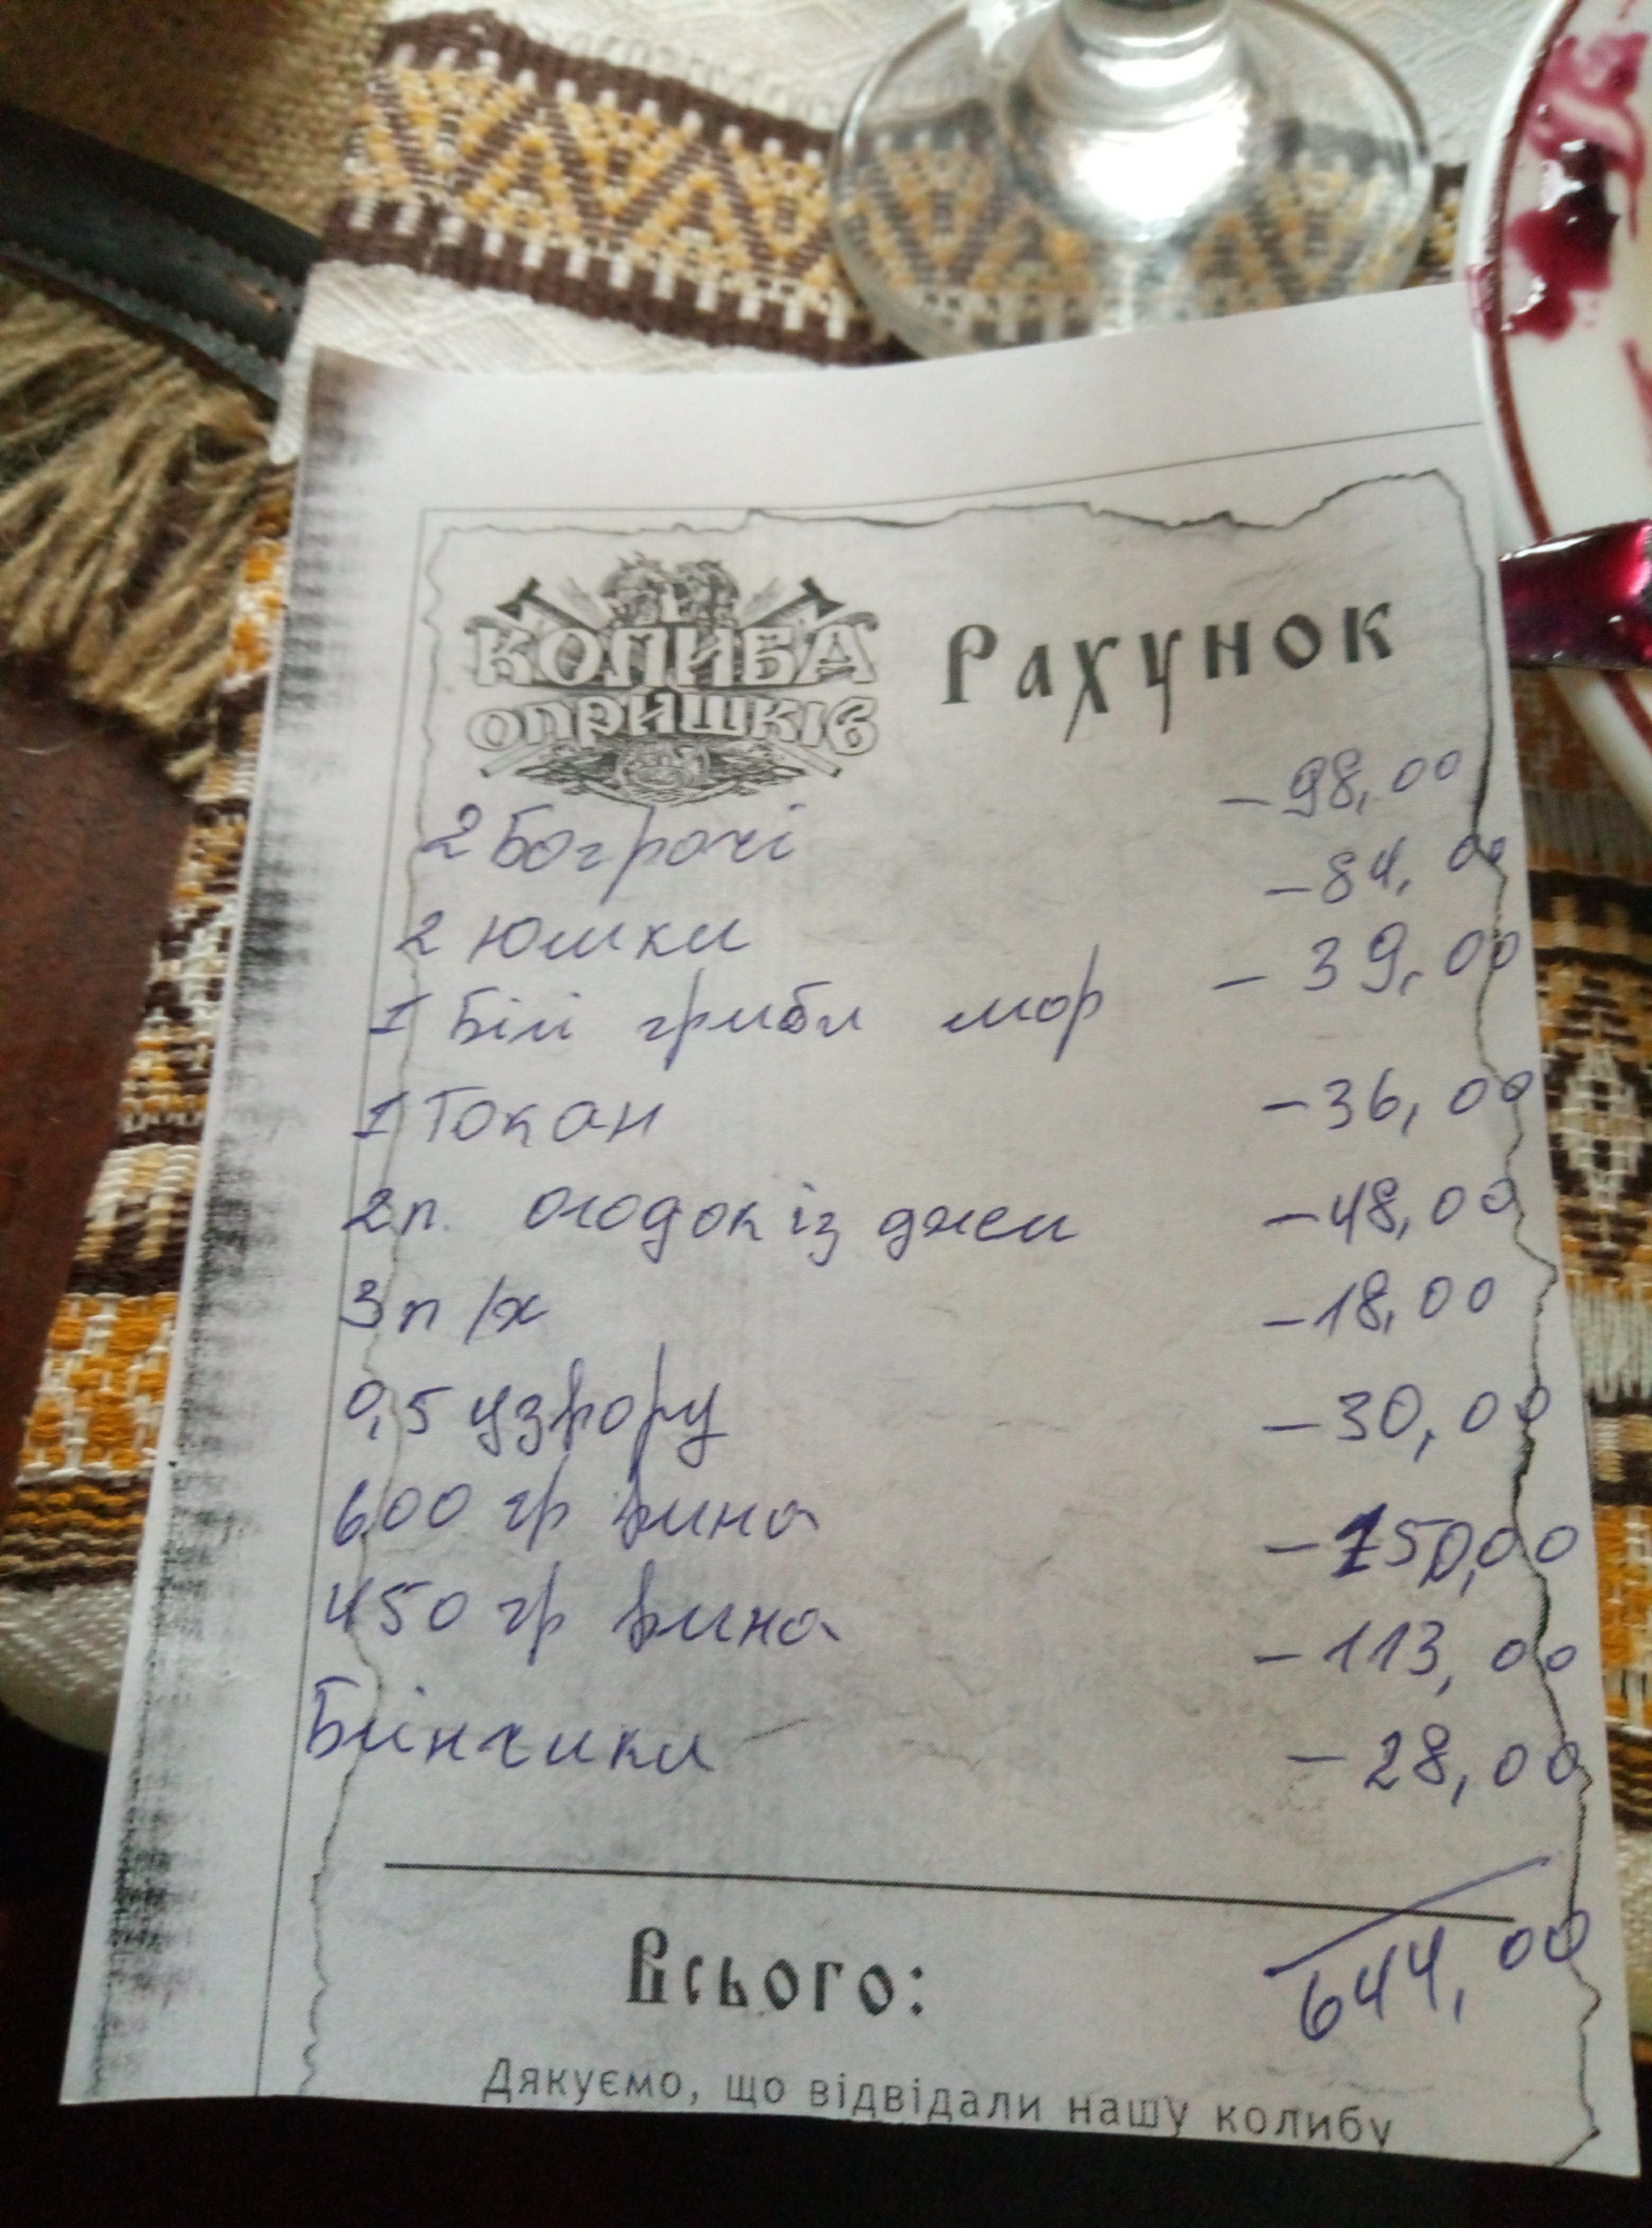 КОЛИБА
ОПРИШКІВ
Рахунок
2 Бограчі - 98,00
2 Юшки - 84,00
1 Білі гриби мор - 39,00
1 Токан - 36,00
2п. із джем - 48,00
3п /х - 18,00
0,5 узвору - 30,00
600 гр вина - 150,00
450 гр вина - 113,00
Блінчики - 28,00
Всього: 644,00
Дякуємо, що відвідали нашу колибу